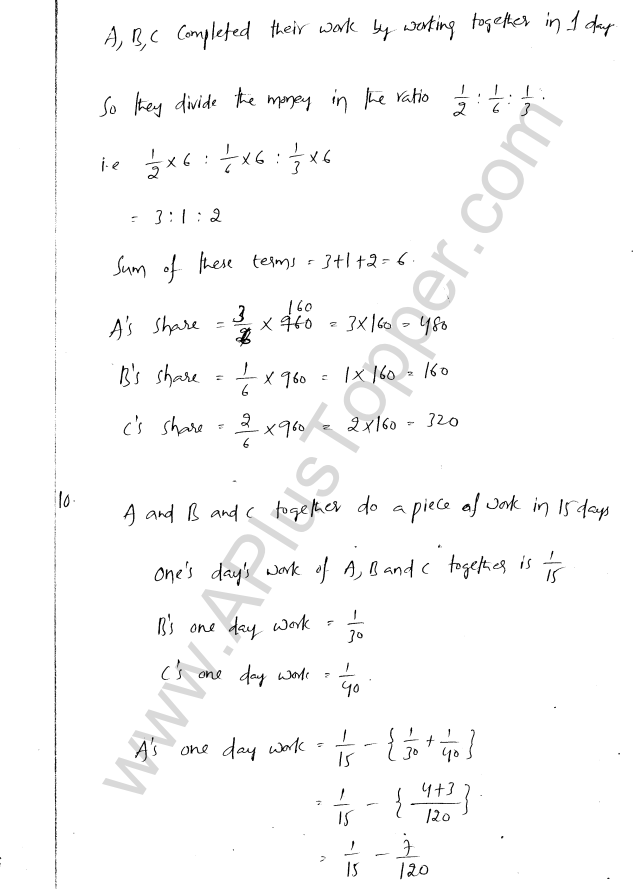 A, B, C Completed their work by working together in 1 day
So they divide the money in the ratio 1/2 : 1/6 : 1/3 .
i.e 1/2 × 6 : 1/6 × 6 : 1/3 × 6
= 3 : 1 : 2
Sum of these terms = 3+1+2 = 6.
A's share = 3/6 × 960 160 = 3×160 = 480
B's share = 1/6 × 960 = 1×160 = 160
C's share = 2/6 × 960 = 2×160 = 320
10. A and B and C together do a piece of work in 15 days
One's day's work of A, B and C together is 1/15
B's one day work = 1/30
C's one day work = 1/40 .
A's one day work = 1/15 - {1/30 + 1/40}
= 1/15 - {4+3/120}
= 1/15 - 7/120
www.APlusTopper.com